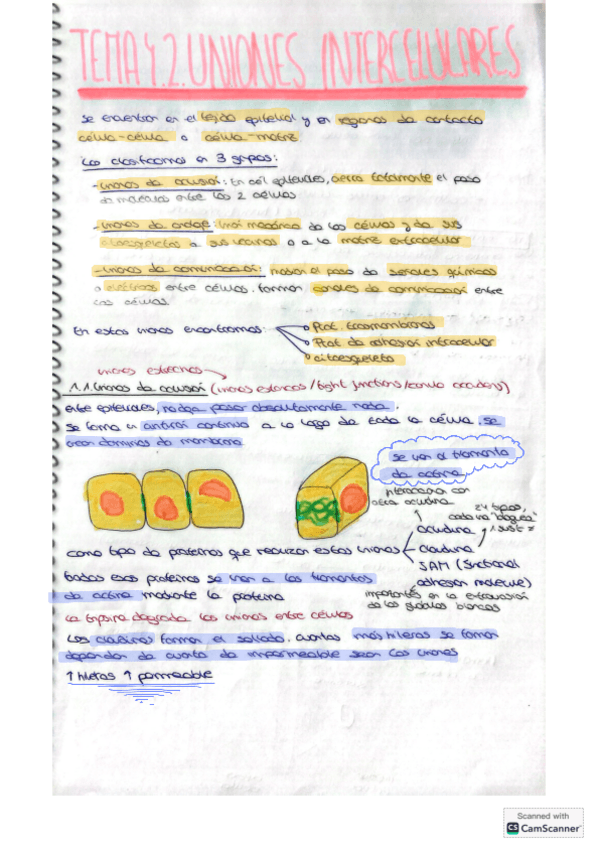 TEMA 4.2. UNIONES INTERCELULARES
Se encuentran en el tejido epitelial y en regiones de contacto
célula-célula o célula-matriz.
Las clasificamos en 3 grupos:
-Uniones de oclusión: En cél epiteliales, cierra totalmente el paso
de moléculas entre las 2 células
-Uniones de anclaje: Unión mecánica de las células y de sus
citoesqueletos a sus vecinas o a la matriz extracelular
-Uniones de comunicación: median el paso de señales químicas
o eléctricas entre células. Forman canales de comunicación entre
las células.
En estas uniones encontramos:
Prot. transmembrana
Prot de adhesión intracelular
citoesqueleto
uniones estrechas
1.1. Uniones de oclusión (uniones estancas / tight junctions /
entre epiteliales, no deja pasar absolutamente nada.
se forma un cinturón continuo a lo largo de toda la célula. se
crean dominios de membrana
se unen al filamento
de actina
interaccionan con
otra ocludina
24 tipos,
cada una
1 sust
ocludina
claudina
JAM (Junctional
adhesion molecule)
como tipo de proteínas que realizan estas uniones
todas esas proteínas se unen a los filamentos
de actina mediante la proteína
importantes en la extravasación
de los glóbulos blancos
la tripsina degrada las uniones entre células
Las claudinas forman el sellado. cuantas más hileras se forman
dependen de cuanto de impermeable sean las uniones
↑ hileras ↑ permeable
Scanned with
CS CamScanner